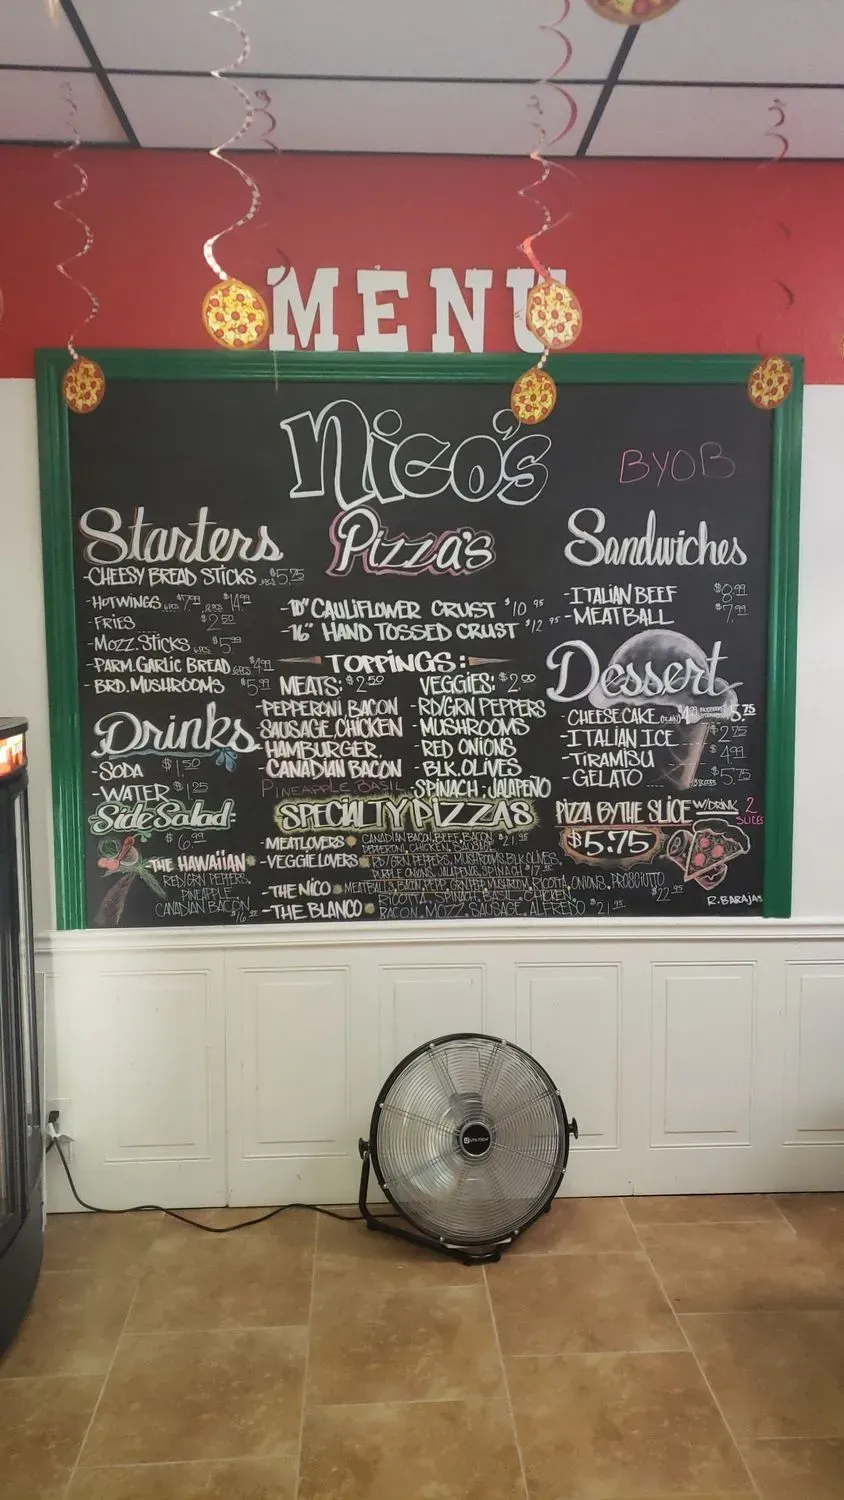 MENU
Nico's
BYOB
Starters
-CHEESY BREAD STICKS $5.75
-HOTWINGS 6PCS $7.99 12PCS $14.99
-FRIES $2.50
-MOZZ.STICKS 6PCS $5.99
-PARM.GARLIC BREAD 6PCS $4.99
-BRD.MUSHROOMS $5.99
Drinks
-SODA $1.50
-WATER $1.25
Side Salad:
$6.99
-THE HAWAIIAN
RED/GRN PEPPERS,
PINEAPPLE,
CANADIAN BACON
Pizza's
-10" CAULIFLOWER CRUST $10.95
-16" HAND TOSSED CRUST $12.95
TOPPINGS:
MEATS: $2.50
-PEPPERONI, BACON
SAUSAGE, CHICKEN
HAMBURGER,
CANADIAN BACON
PINEAPPLE BASIL
VEGGIES: $2.00
-RD/GRN PEPPERS
-MUSHROOMS
-RED ONIONS
-BLK.OLIVES
-SPINACH · JALAPEÑO
SPECIALTY PIZZAS
-MEATLOVERS CANADIAN BACON, BEEF, BACON, $21.95
PEPPERONI, CHICKEN, SAUSAGE
-VEGGIELOVERS RD/GRN PEPPERS, MUSHROOMS, BLK OLIVES,
PURPLE ONIONS, JALAPENOS, SPINACH $17.95
-THE NICO MEATBALLS, BACON, PEPP, GRN PEPP, MUSHROOM, RICOTTA, ONIONS, PROSCIUTTO $22.95
-THE BLANCO RICOTTA, SPINACH, BASIL, CHICKEN,
BACON, MOZZ, SAUSAGE, ALFREDO $21.95
Sandwiches
-ITALIAN BEEF $8.99
-MEATBALL $7.99
Dessert
-CHEESECAKE (PLAIN) $4.99 $5.75
-ITALIAN ICE $2.75
-TIRAMISU $4.99
-GELATO $5.75
PIZZA BY THE SLICE W/DRINK 2
SLICES
$5.75
R.BARAJAS
UTILITECH